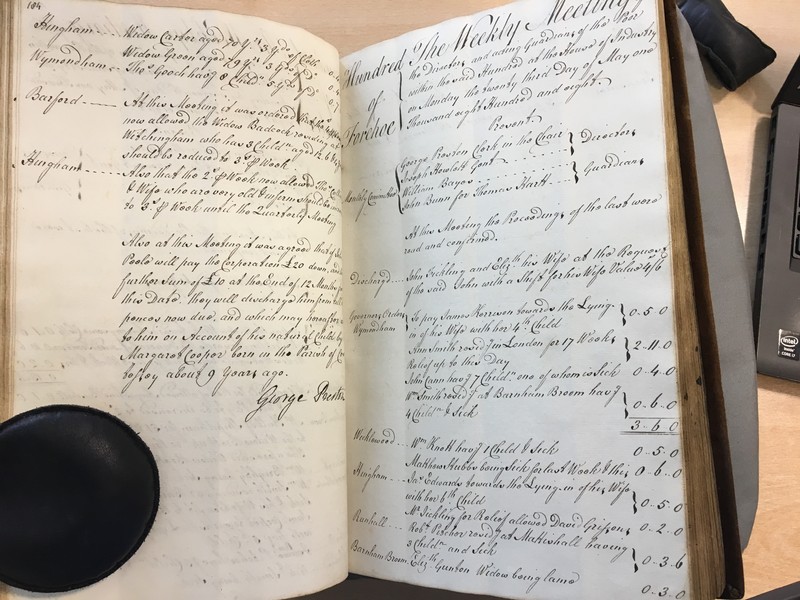 104
Hingham Widow Carter aged 70 Yrs 3 Yds of Cloth
Wymondham Widow Green aged 79 Yrs 3 Yds Do
Thos Gooch havg 8 Childn 5 Yds Do
Barford At this Meeting it was ordered that the
now allowed the Widow Badcock residing at
Witchingham who has 3 Childn aged 12, 6 &
should be reduced to 3s ℔ Week
Hingham Also that the 2s ℔ Week now allowed Thos
& Wife who are very old & infirm should be
to 3s ℔ Week until the Quarterly Meeting
Also at this Meeting it was agreed that if
Poole will pay the Corporation £20 down, and
further Sum of £10 at the End of 12 Months
this Date, they will discharge him from
pences now due, and which may
to him on Account of his natural Child by
Margaret Cooper born in the Parish of
about 9 Years ago.
George
Hundred of Forehoe
The Weekly Meeting of
the Directors and acting Guardians of the Poor
within the said Hundred at the House of Industry
on Monday the twenty third Day of May one
Thousand eight Hundred and eight.
Present
George Preston Clerk in the Chair
Joseph Howlett Gent
Directors
Monthly Committee
William Bayes
John Bunn for Thomas Hartt
Guardians
At this Meeting the Proceedings of the last were
read and confirmed.
Discharged John Tickling and Elizth his Wife at the Request
of the said John with a Shift for his Wife Value 4/6
Governors Orders
Wymondham
To pay James Morrison towards the Lying-
in of his Wife with her 4th Child 0..5..0
Ann Smith residg in London for 17 Weeks
Relief up to this Day 2..11..0
John Cann havg 7 Childn one of whom is Sick 0..4..0
Wm Smith residg at Barnham Broom havg
4 Childn & Sick 0..6..0
3..6..0
Wicklewood Wm Knott havg 1 Child & Sick 0..5..0
Matthew Stubbs being Sick for last Week & this 0..6..0
Hingham Jas Edwards towards the Lying-in of his Wife
with her 6th Child 0..5..0
Mr Tickling for Relief allowed David 0..2..0
Runhall Robt Pitcher residg at Mattishall having
3 Childn and Sick 0..3..6
Barnham Broom Elizth Gunton Widow being lame 0..3..0
intel
inside
CORE i7